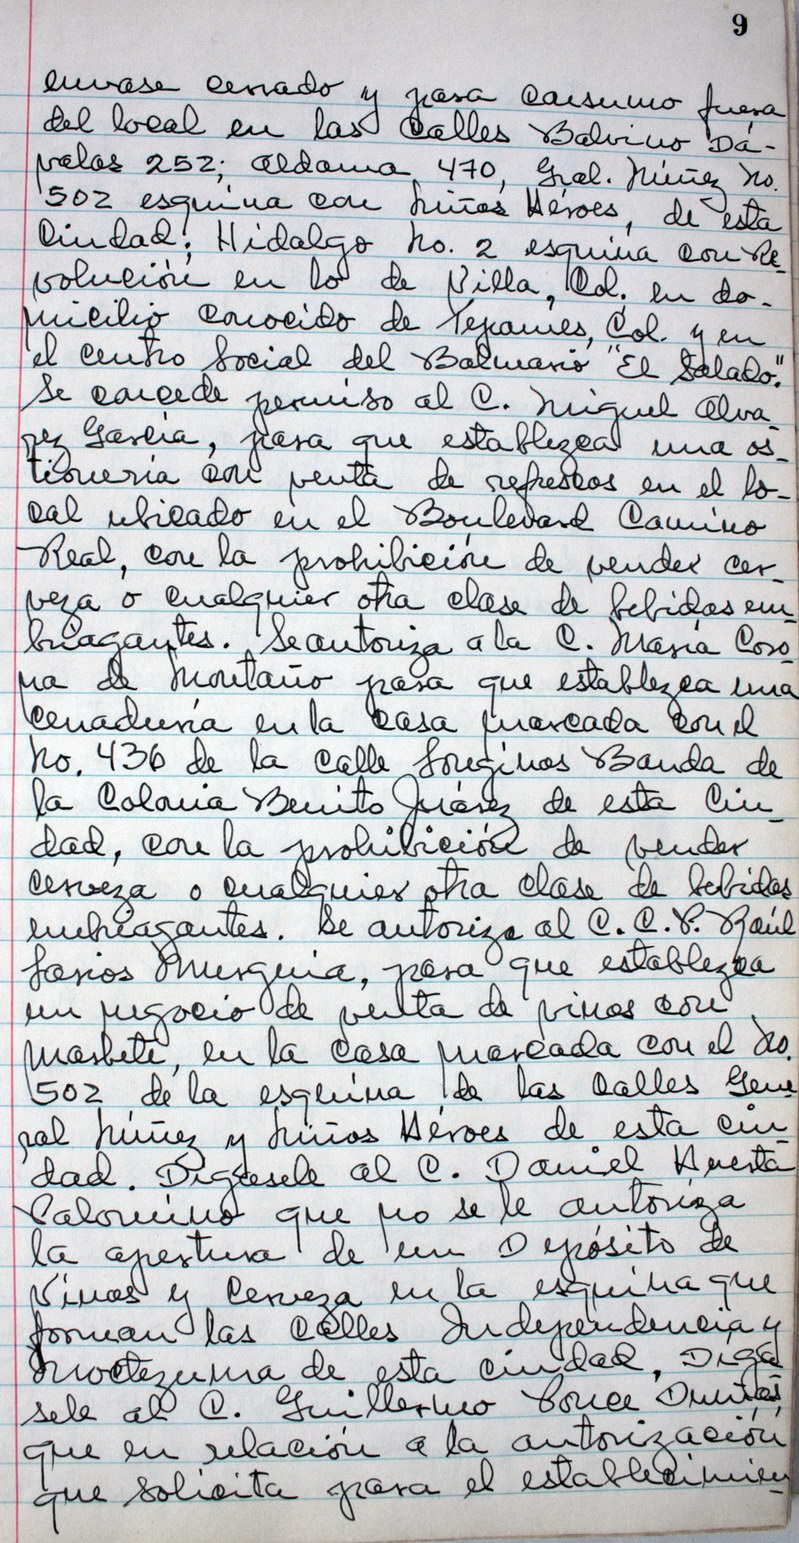 9
envase cerrado y para consumo fuera
del local en las Calles Balvino Dá-
valos 252; Aldama 470, Gral. Núñez No.
502 esquina con Niños Héroes, de esta
Ciudad; Hidalgo No. 2 esquina con Re-
volución en lo de Villa, Col. en do-
micilio conocido de Tepames, Col. y en
el Centro Social del Balneario "El Salado."
Se concede permiso al C. Miguel Alva-
rez García, para que establezca una os-
tionería con venta de refrescos en el lo-
cal ubicado en el Boulevard Camino
Real, con la prohibición de vender cer-
veza o cualquier otra clase de bebidas em-
briagantes. Se autoriza a la C. María Coro-
na de Montaño para que establezca una
cenaduría en la casa marcada con el
No. 436 de la calle Longinos Banda de
la Colonia Benito Juárez de esta Ciu-
dad, con la prohibición de vender
cerveza o cualquier otra clase de bebidas
embriagantes. Se autoriza al C.C.P. Raúl
Larios Munguia, para que establezca
un negocio de venta de vinos con
marbete, en la casa marcada con el No.
502 de la esquina de las Calles Gene
ral Núñez y Niños Héroes de esta ciu-
dad. Dígasele al C. Daniel Huerta
Palomino que no se le autoriza
la apertura de un Depósito de
Vinos y Cerveza en la esquina que
forman las Calles Independencia y
Moctezuma de esta ciudad. Díga
sele al C. Guillermo Ponce
que en relación a la autorización
que solicita para el establecimien-